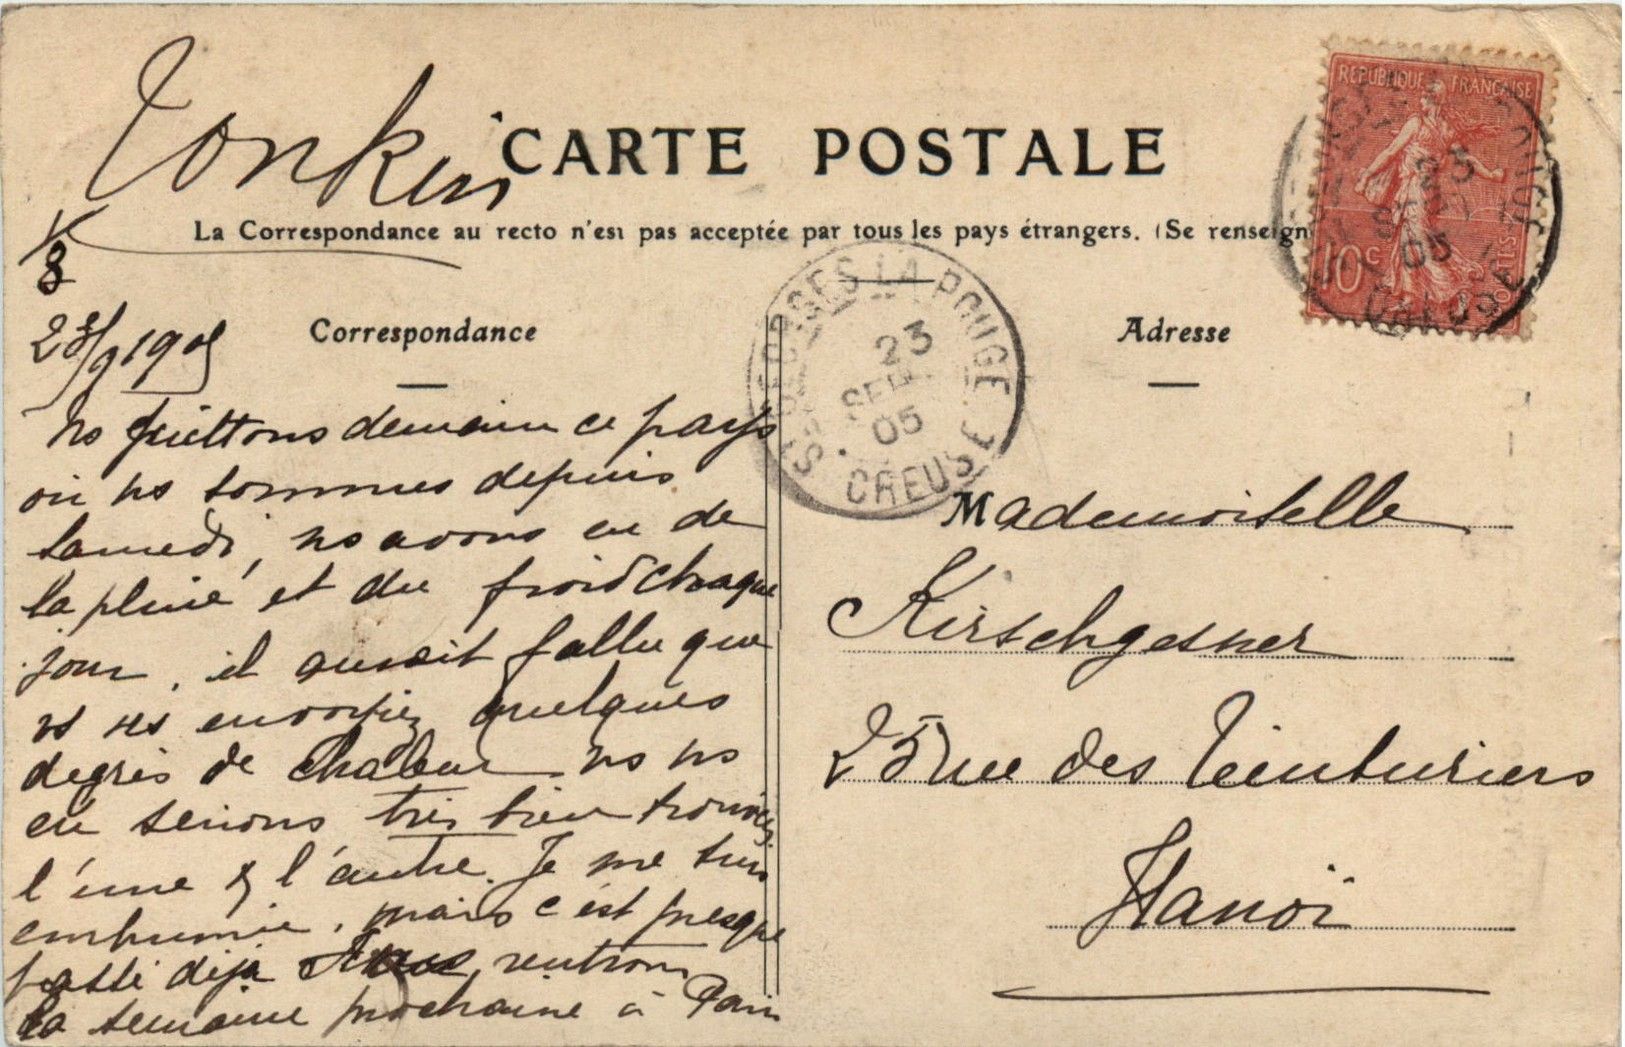 Tonkin
CARTE POSTALE
La Correspondance au recto n'est pas acceptée par tous les pays étrangers. (Se renseign
REPUBLIQUE FRANÇAISE
10 c
POSTES
23
SEPT
05
CREUSE
ST GEORGES LA POUGE
23
SEPT
05
CREUSE
8
23/9 1905
Correspondance
Adresse
ns quittons demain ce pays
où ns sommes depuis
samedi, ns avons eu de
la pluie et du froid chaque
jour, il aurait fallu que
vs ns envoyiez quelques
degrés de chaleur ns ns
en serions très bien trouvées
l'une & l'autre. Je me suis
enrhumée, mais c'est presque
passé déjà rentrons
la semaine prochaine à Paris
Mademoiselle
Kirschgesner
25 rue des Teinturiers
Hanoï